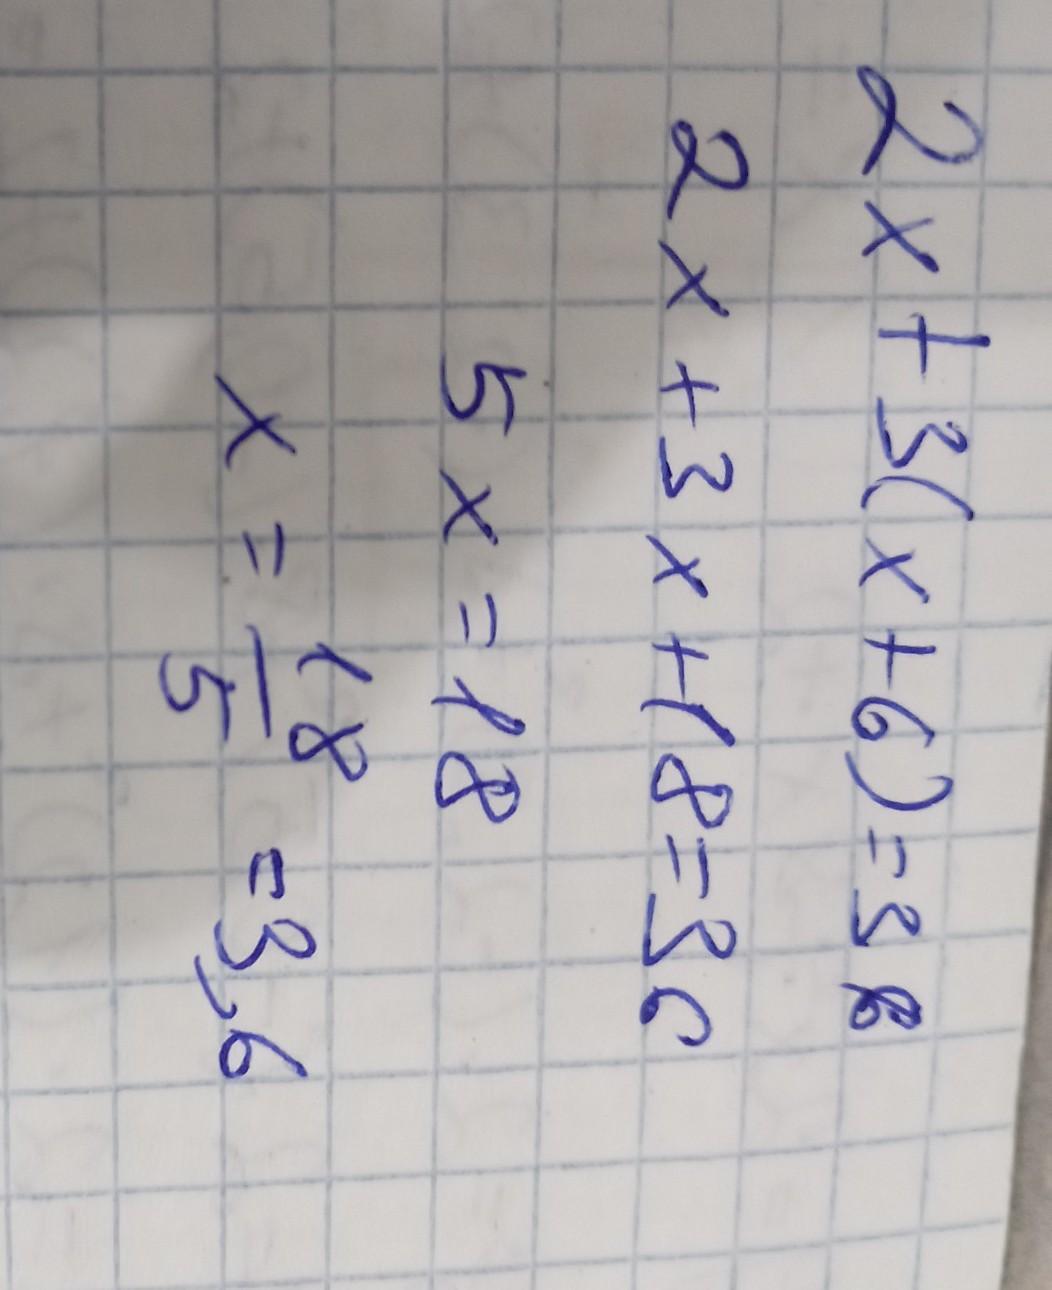 2x+3(x+6)=36
2x+3x+18=36
5x=18
x=18/5=3,6